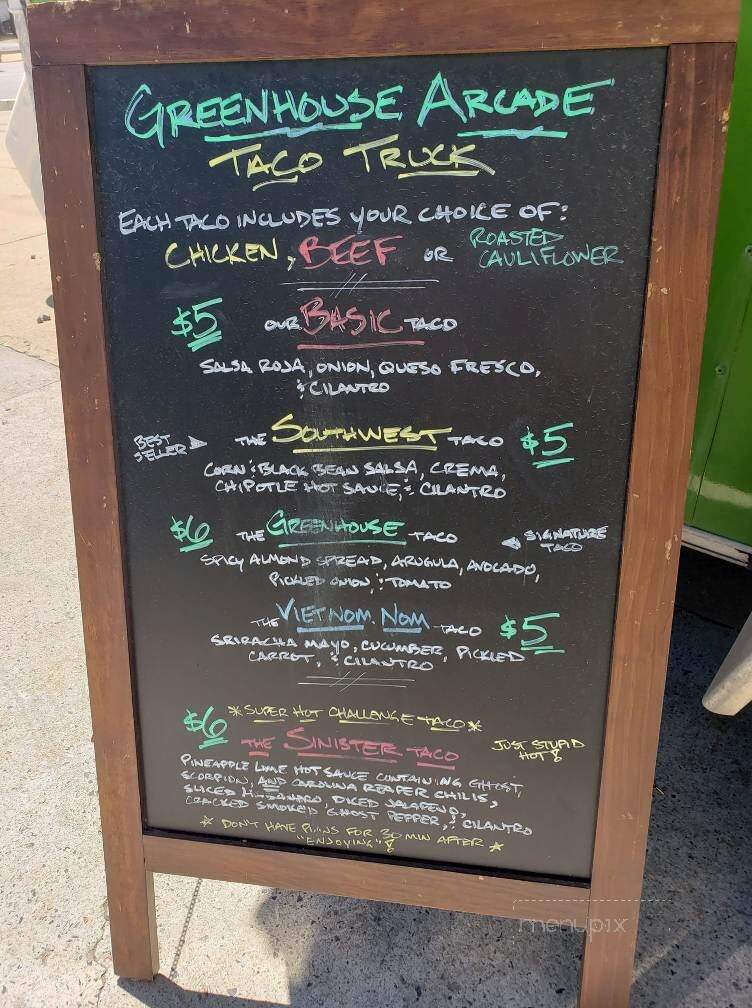 GREENHOUSE ARCADE
TACO TRUCK
EACH TACO INCLUDES YOUR CHOICE OF:
CHICKEN, BEEF OR ROASTED CAULIFLOWER
$5 OUR BASIC TACO
SALSA ROJA, ONION, QUESO FRESCO,
& CILANTRO
BEST SELLER THE SOUTHWEST TACO $5
CORN & BLACK BEAN SALSA, CREMA,
CHIPOTLE HOT SAUCE, & CILANTRO
$6 THE GREENHOUSE TACO SIGNATURE TACO
SPICY ALMOND SPREAD, ARUGULA, AVOCADO,
PICKLED ONION, & TOMATO
THE VIET NOM NOM TACO $5
SRIRACHA MAYO, CUCUMBER, PICKLED
CARROT, & CILANTRO
$6 *SUPER HOT CHALLENGE TACO*
THE SINISTER TACO JUST STUPID HOT!
PINEAPPLE LIME HOT SAUCE CONTAINING GHOST,
SCORPION, AND CAROLINA REAPER CHILIS,
SLICED HABANERO, DICED JALAPENO,
CRACKED SMOKED GHOST PEPPER, & CILANTRO
* DON'T HAVE PLANS FOR 30 MIN AFTER *
"ENJOYING"!
menupix